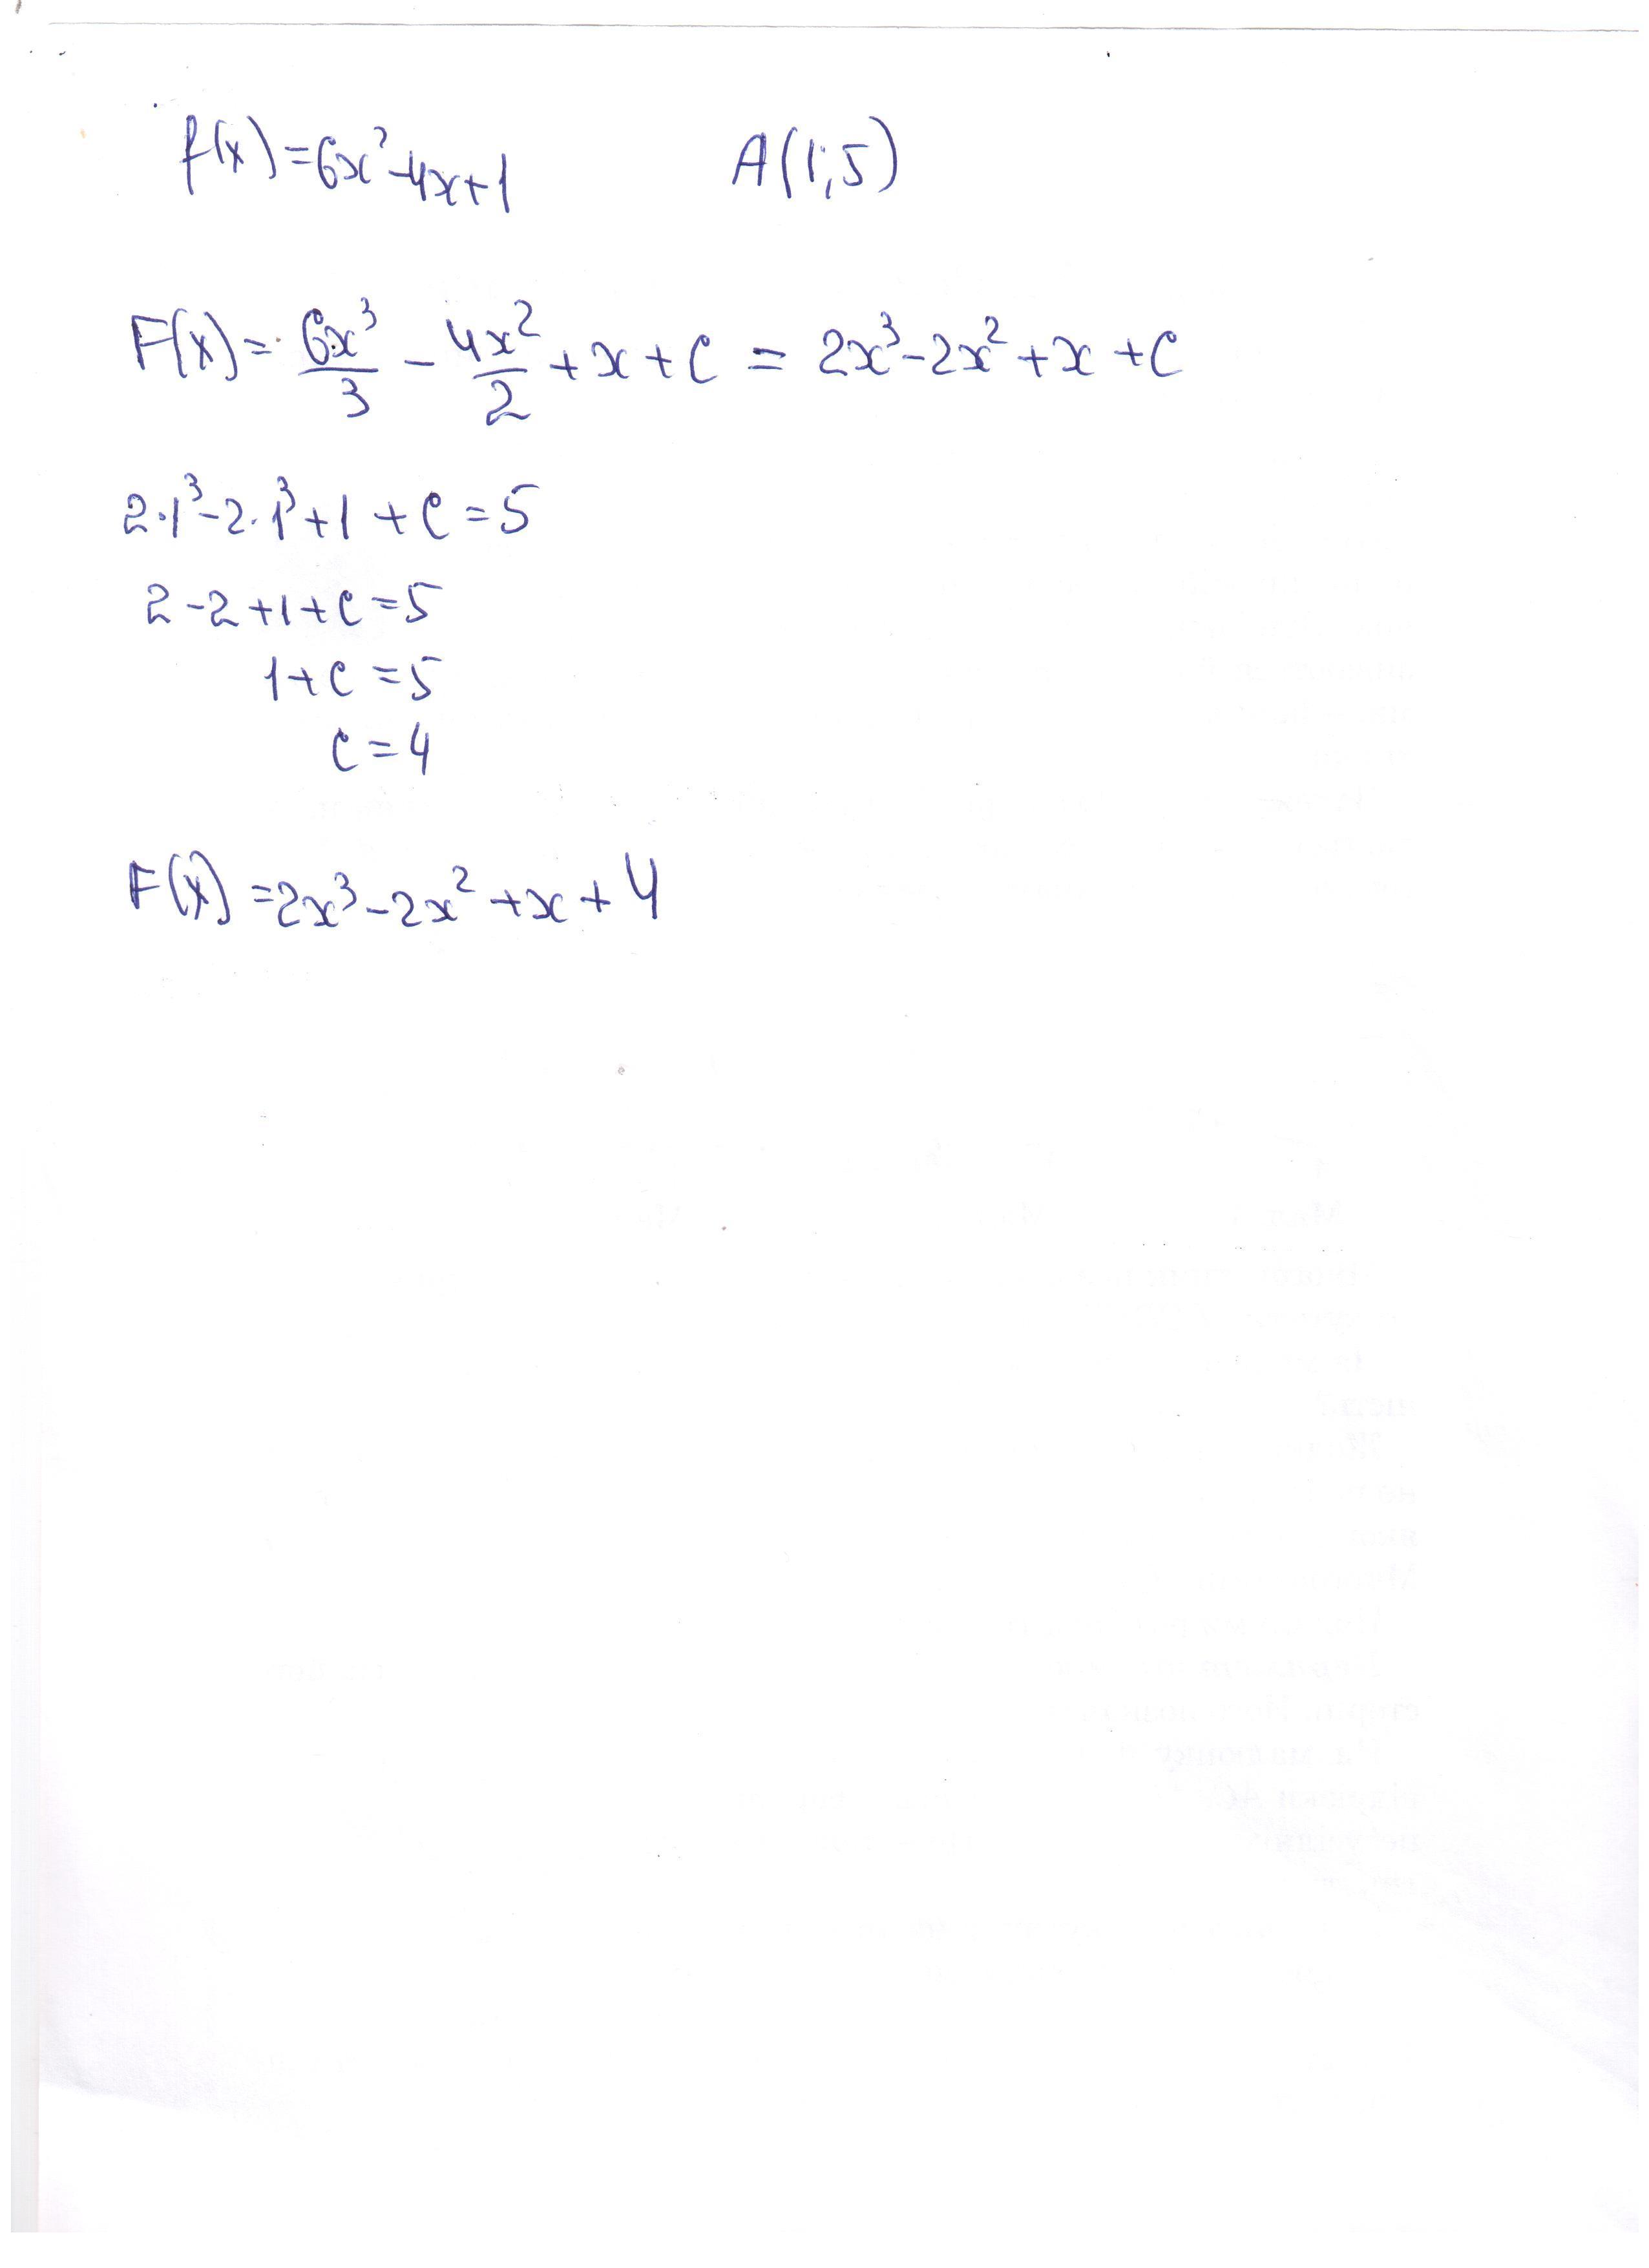 f(x)=6x²-4x+1 A(1;5)
F(x)= 6x³/3 - 4x²/2 + x + C = 2x³-2x²+x+C
2·1³-2·1³+1+C=5
2-2+1+C=5
1+C=5
C=4
F(x)=2x³-2x²+x+4